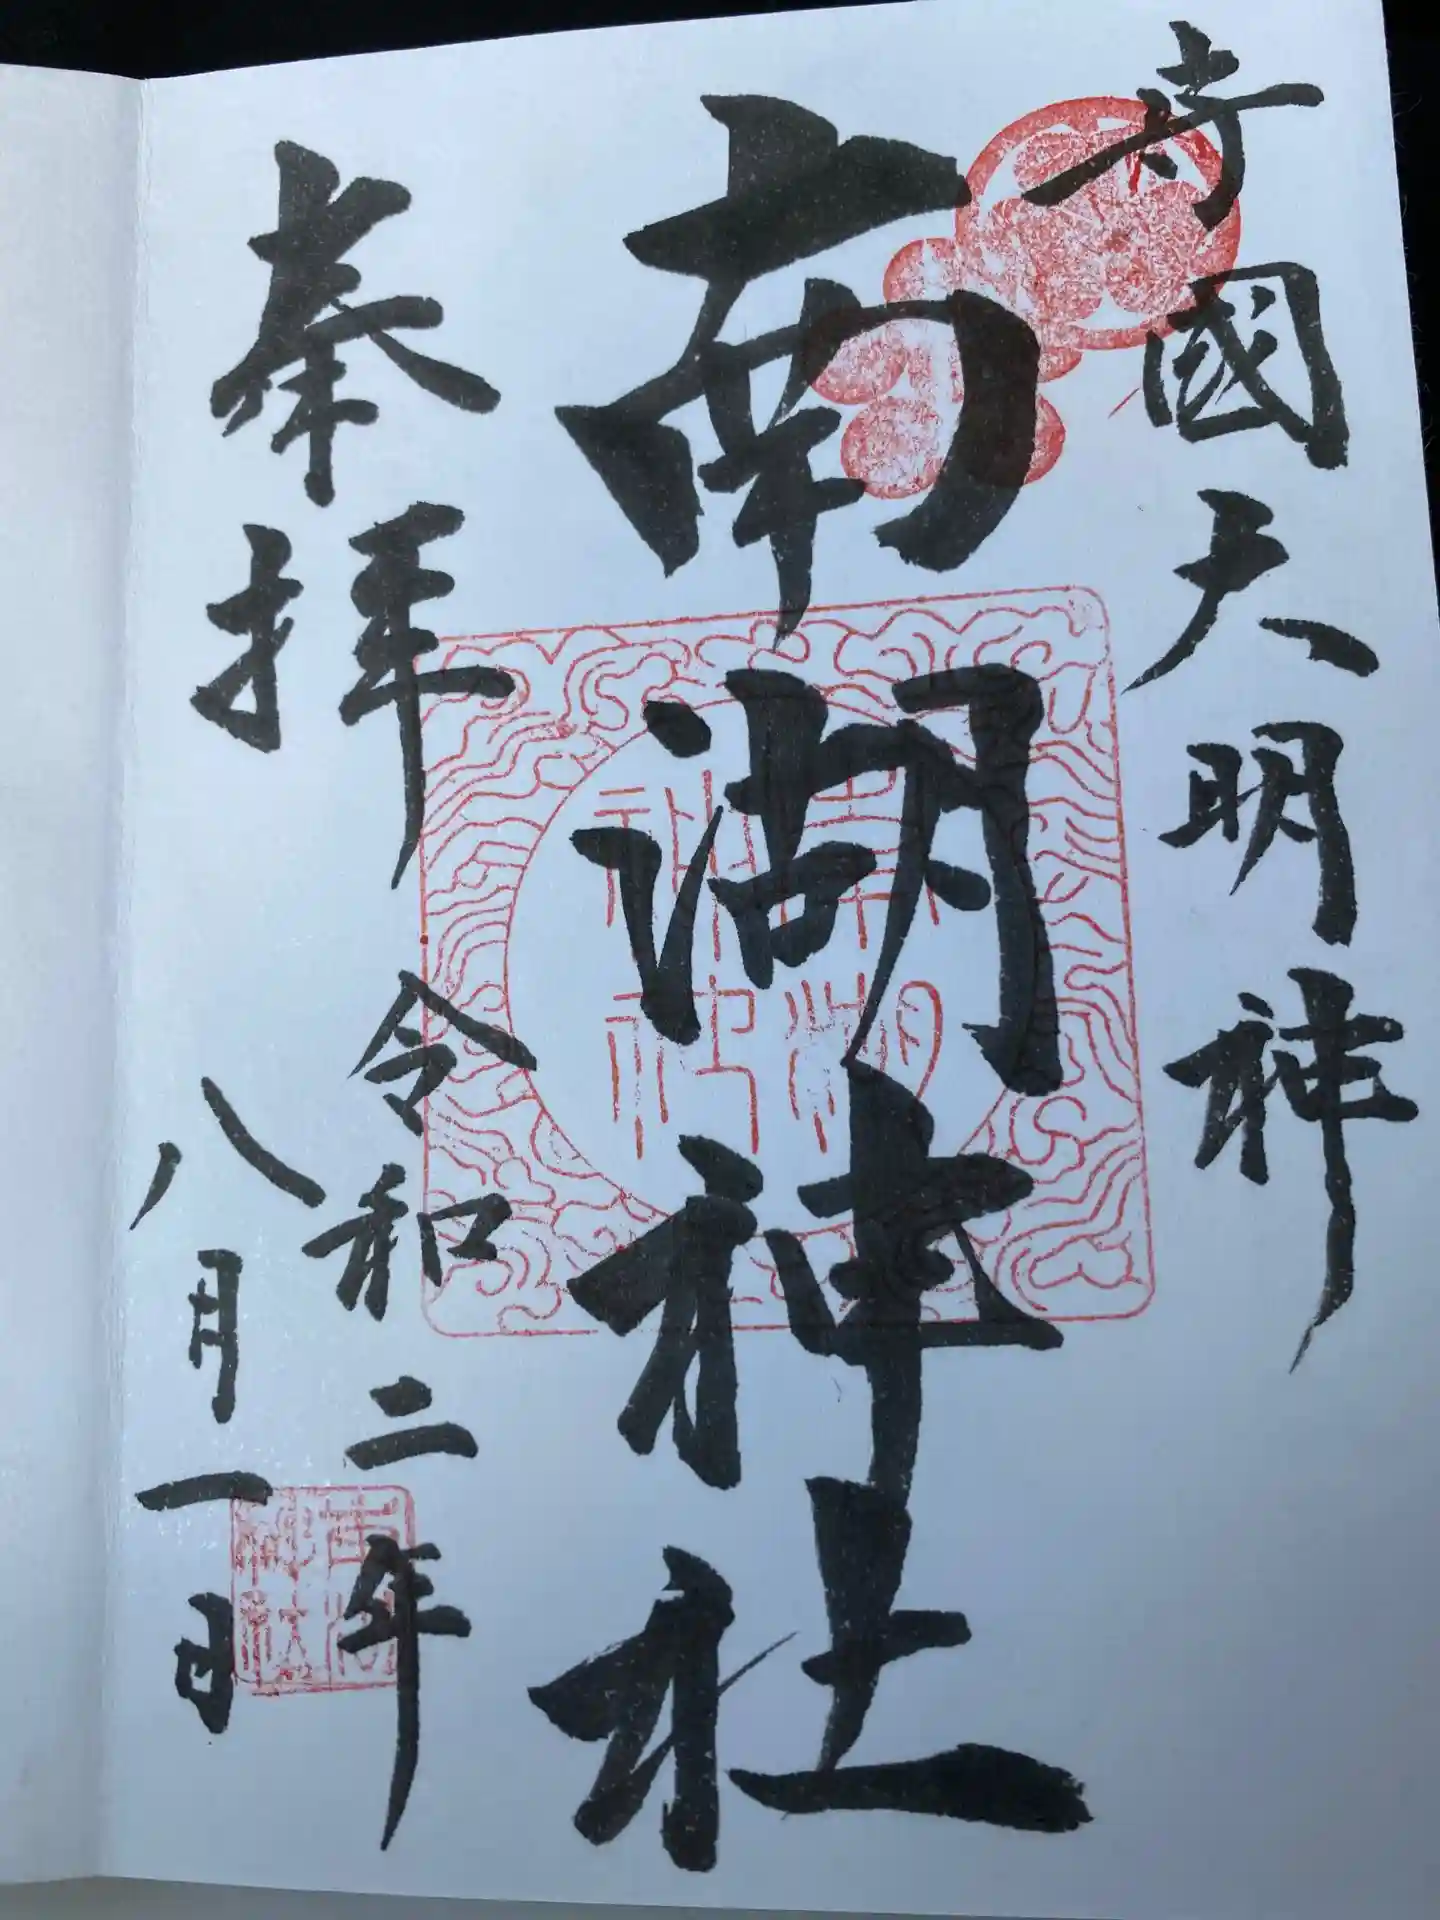 守國大明神
南湖神社
奉拝
令和二年
八月一日
南湖神社
南湖神社